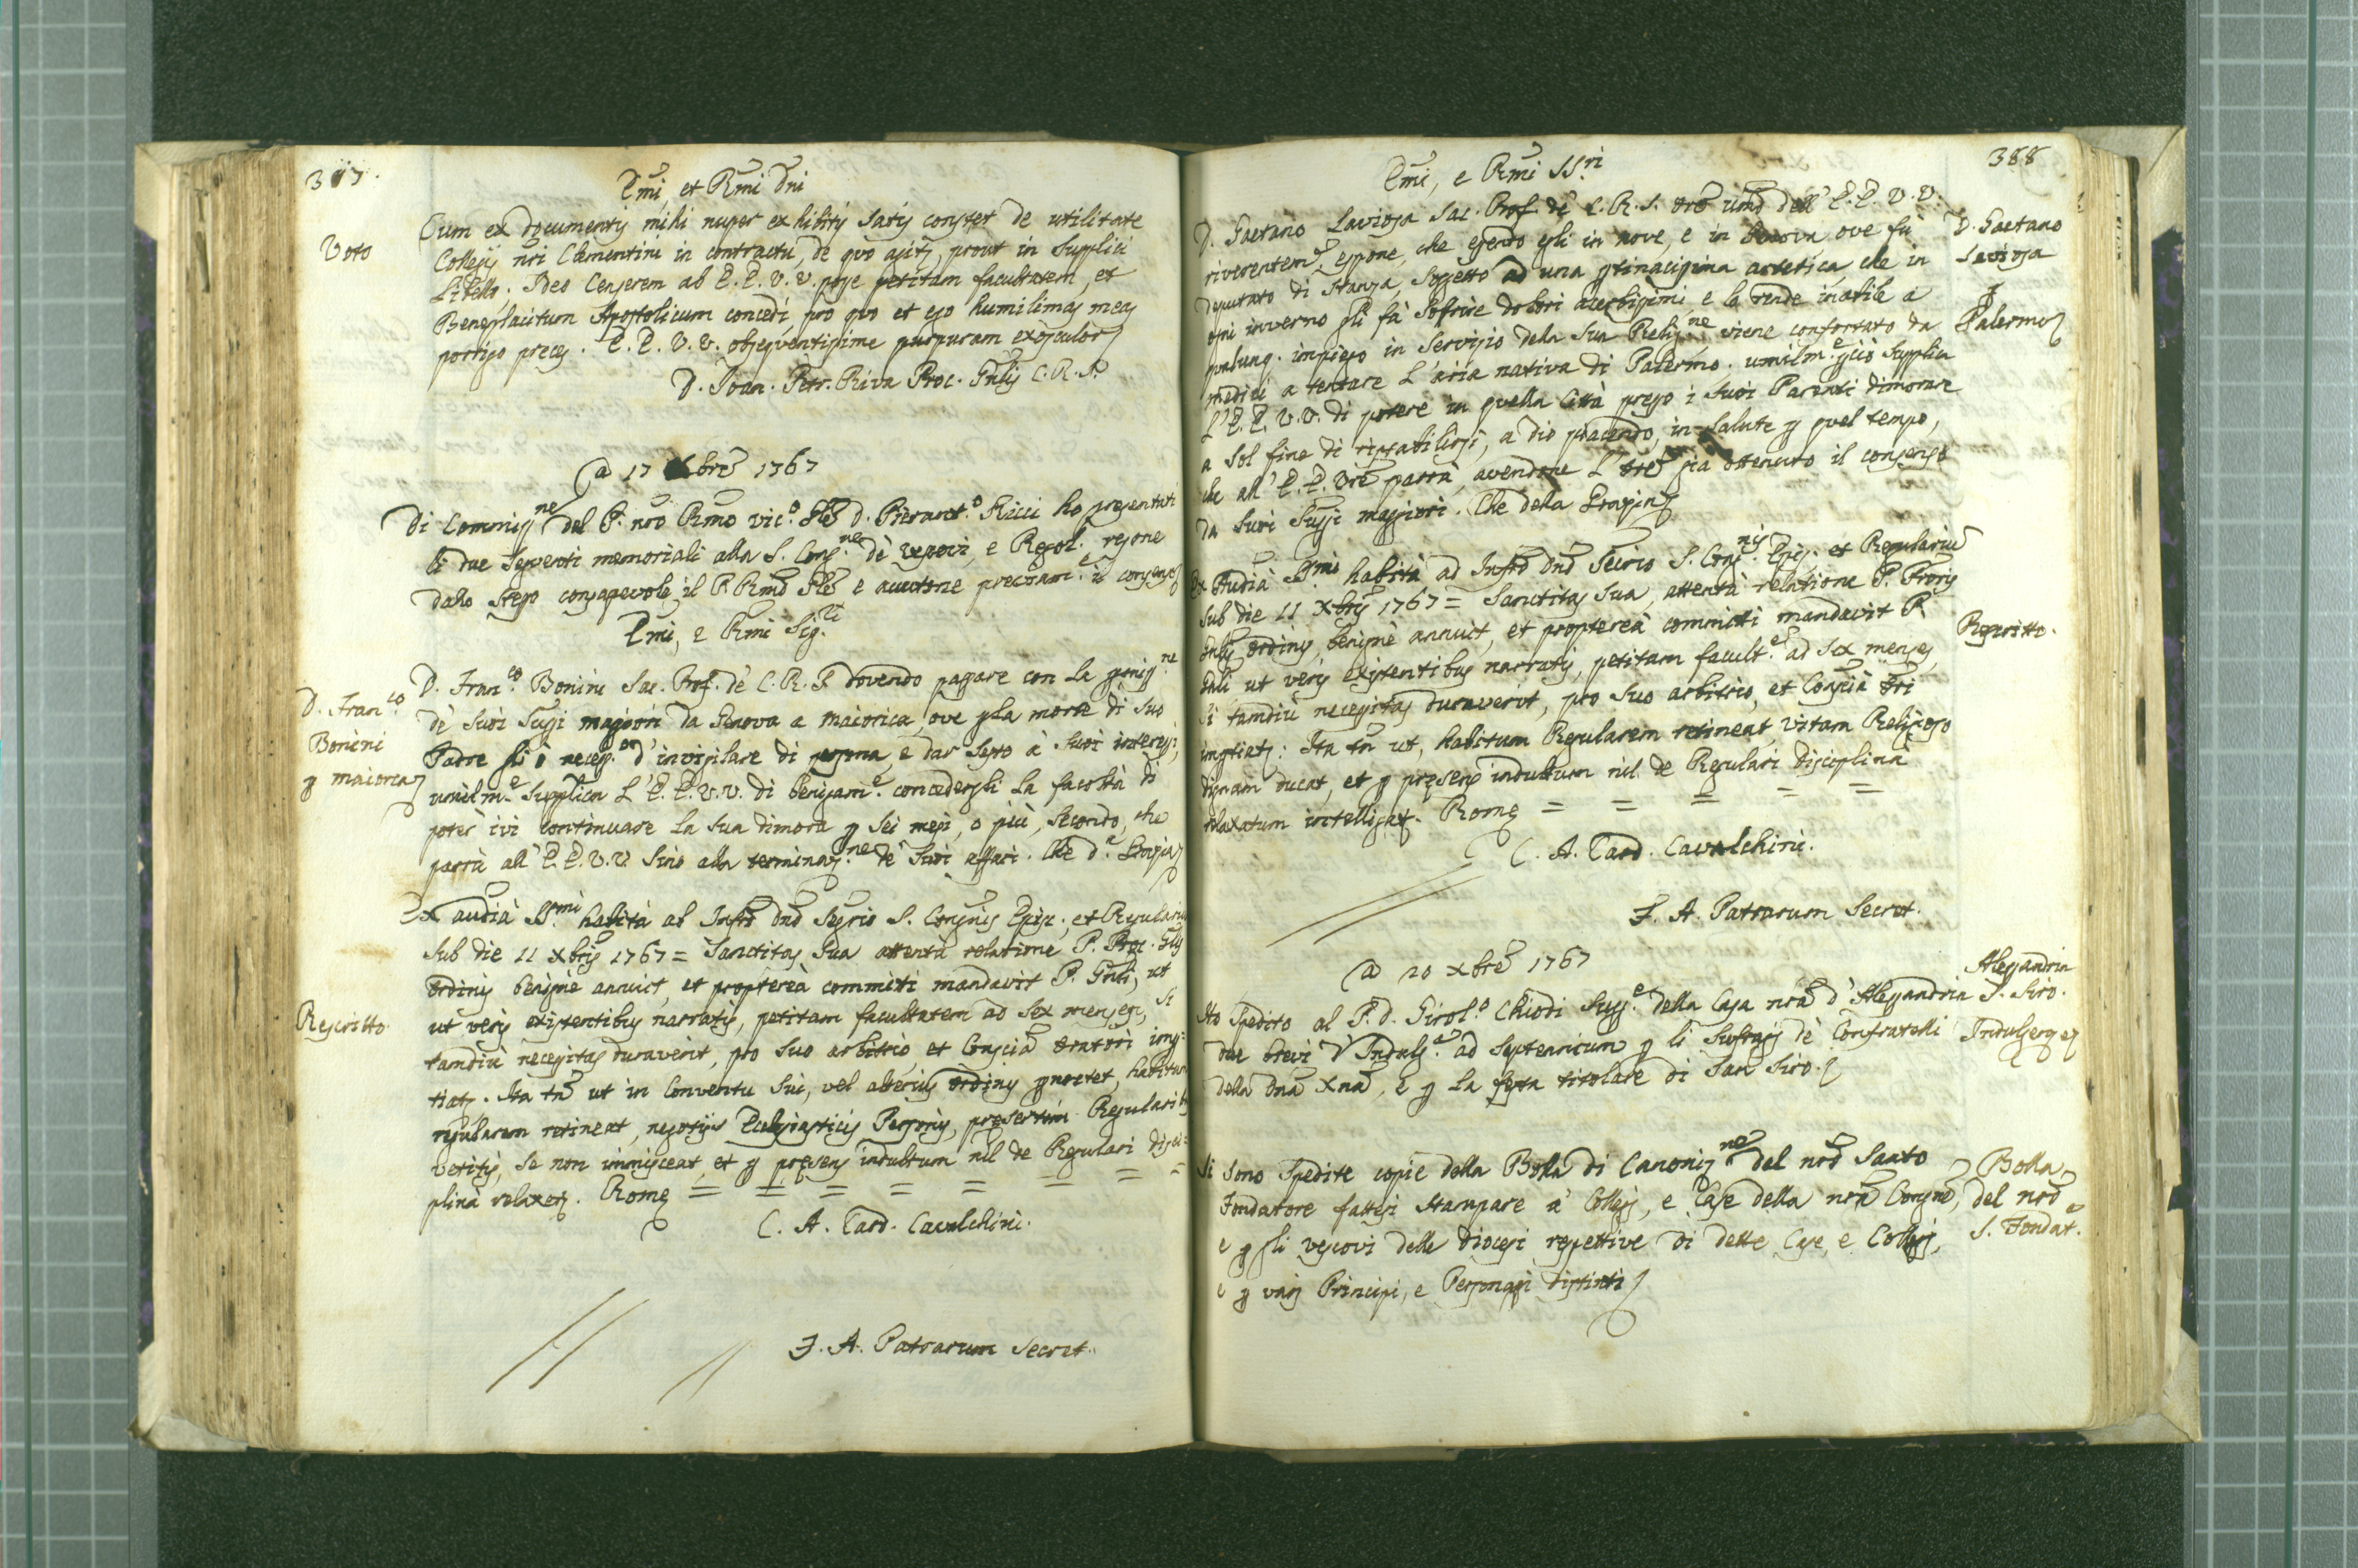 387.
Emi, et Rmi Dni
Voto
Cum ex documentis mihi nuper exhibitis satis constet de utilitate
Collegij nri Clementini in contractu, de quo agitr, prout in supplici
Libello. Ideo Censerem ab E.E. V.V. posse petitam facultatem, et
Beneplacitum Apostolicum concedi, pro quo et ego humilimas meas
porrigo preces. E.E. V.V. obsequentissime purpuram exosculor
D. Joan. Petr. Riva Proc. Gnlis C.R.S.
A 17 Xbre 1767
Di Commissne del P. nro Rmo vico. Gle D. Pierant.o Ricci ho presentati
li due seguenti memoriali alla S. Cong.ne dè vescovi, e Regol. resone
dallo stesso consapevole il P. Rmo Gle e avutone precisam.e il consenso
Emi, e Rmi Sig.ri
D. Fran.co
Bonini
p maiorca
D. Fran.co Bonini Sac. Prof. dè C.R.S. dovendo passare con la pmiss.ne
dè suoi Supi maggiori da Genova a maiorica, ove p la morte di suo
Padre gli è necess.o d'invigilare di persona, e dar sesto à suoi interessi,
umilm.e supplica L'E.E. V.V. di benignam.e concedergli la facoltà di
poter ivi continuare la sua dimora p sei mesi, o più, secondo, che
parrà all'E.E. V.V. sino alla terminaz.ne dè suoi affari. Che d.a Grazia
Rescritto
Ex audià SS.mi habità ab Infro Dno Segrio S. Congnis Episc. et Regularium
sub die 11 Xbris 1767 = Sanctitas sua attentà relatione P. Proc. Glis
Ordinis benignè annuit, et proptereà committi mandavit P. Gnli, ut
ut veris existentibus narratis, petitam facultatem ad sex menses, si
tamdiù necessitas duraverit, pro suo arbitrio, et Conscià Oratori imp=
tiatr. Ita tn ut in Conventu sui, vel alterius Ordinis pnoctet, habitum
regularem retineat, negotijs Eccleiasticis Personis, presertim Regularibs
vetitis, se non immisceat, et p presens indultum nil de Regulari disci=
plinà relaxetr. Rome = = = = = = = =
C. A. Card. Cavalchini.
F. A. Patrarum Secret.
388
Emi, e Rmi SS.ri
D. Gaetano
Lavioja
p
Palermo
D. Gaetano Lavioja Sac. Prof. de C.R.S. Ore umo dell'E.E. V.V.
riverentem.e espone, che essendo egli in nove, e in Genova ove fù
deputato di stanza, soggetto ad una ptinacissima artetica, che in
ogni inverno gli fà soffrire dolori acerbissimi, e lo rende inabile a
qualunq. impiego in servizio della sua Relig.ne viene confortato da
medici a tentare L'aria nativa di Palermo. umilm.e pciò supplica
L'E.E. V.V. di potere in quella Città presso i suoi Parenti dimorare
a sol fine di ristabilirsi, a Dio piacendo, in salute p quel tempo,
che all'E.E. Vre parrà, avendone L'Ore già ottenuto il consenso
da suoi Supi maggiori. Che della Grazia
Rescritto.
Ex Audià SS.mi habità ad Infro Dno Secrio S. Con.nis Epis. et Regularium
sub die 11 Xbris 1767 = Sanctitas sua, attentà relatione P. Proris
Gnlis Ordinis, benignè annuit, et proptereà committi mandavit P.
Gnli ut veris existentibus narratis, petitam facult.em ad sex menses,
si tamdiù necessitas duraverit, pro suo arbitrio, et Conscià Ori
imptiatr: Ita tn ut, habitum Regularem retineat vitam Religioso
dignam ducat, et p presens indultum nil de Regulari disciplinà
relaxatum intelligatr. Rome = = = = =
C. A. Card. Cavalchini.
F. A. Patrarum Secret.
A 20 Xbre 1767
Alessandria
S. Siro.
Indulgenze
Ho spedito al P. D. Girol.o Chiodi Sup.e della Casa nra d'Alessandria
due brevi d'Indulg.e ad septennium p li suffragj dè Confratelli
della Dna Xna, e p la festa titolare di San Siro.
Bolla
del nro
S. Fondat.e
Si sono spedite copie della Bolla di Canoniz.ne del nro Santo
Fondatore fattesi stampare à Collegj, e Case della nra Congne,
e p gli vescovi delle diocesi respettive di dette Case, e Collegj,
e p varj Principi, e Personaggi distinti